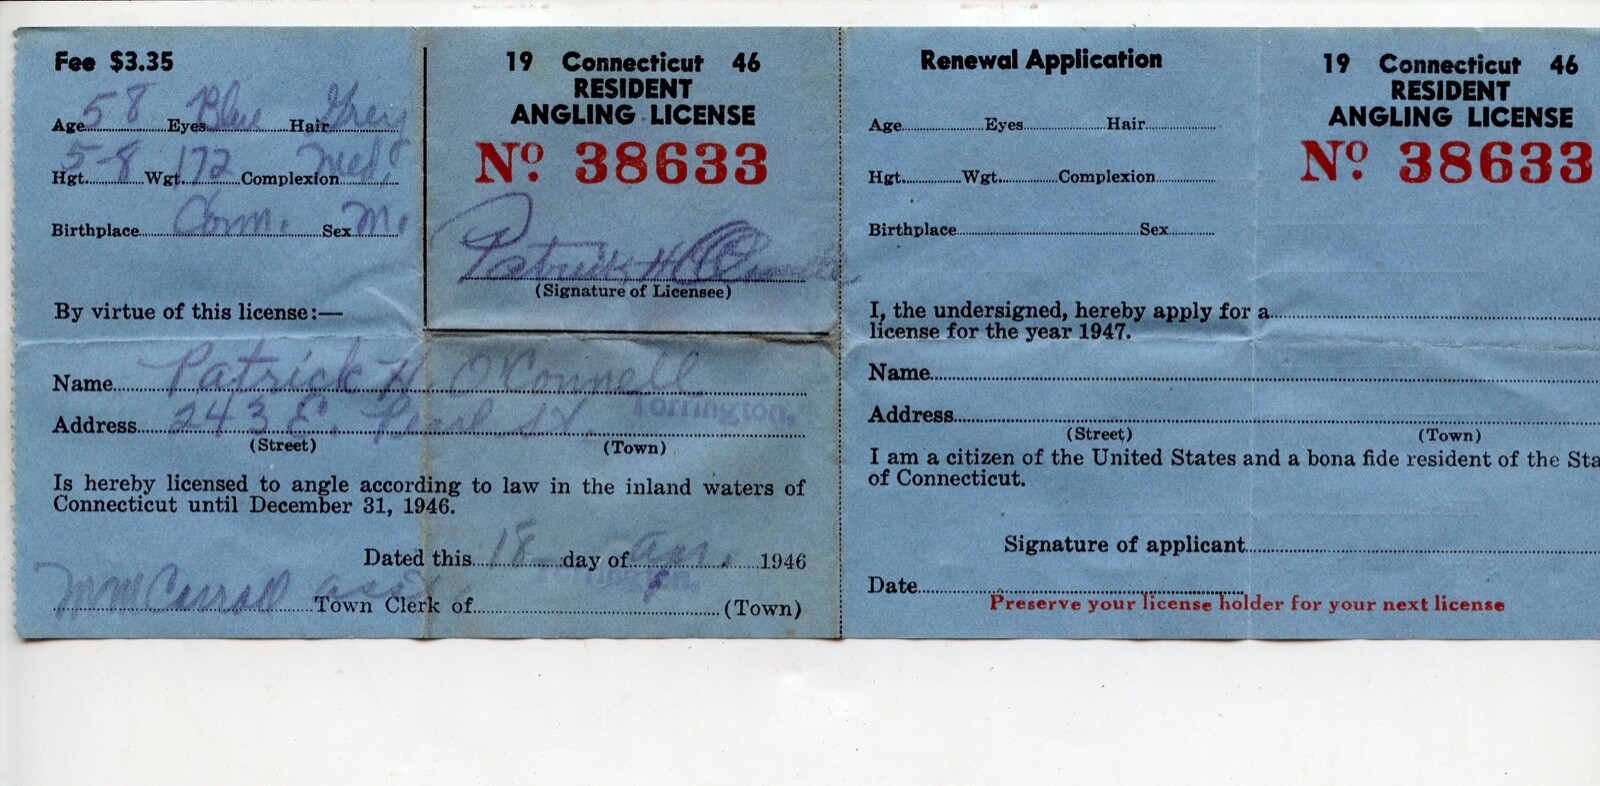 Fee $3.35
Age 58 Eyes Blue Hair Grey
Hgt. 5-8 Wgt. 172 Complexion Med.
Birthplace Conn. Sex M.
19 Connecticut 46
RESIDENT
ANGLING LICENSE
Nº 38633
Patrick H O'Connell
(Signature of Licensee)
By virtue of this license:—
Name Patrick H. O'Connell
Address 243 E. Pearl St. Torrington,
(Street) (Town)
Is hereby licensed to angle according to law in the inland waters of
Connecticut until December 31, 1946.
Dated this 18 day of Apr. 1946
Torrington,
Carroll asst. Town Clerk of (Town)
Renewal Application
Age Eyes Hair
Hgt. Wgt. Complexion
Birthplace Sex
19 Connecticut 46
RESIDENT
ANGLING LICENSE
Nº 38633
I, the undersigned, hereby apply for a
license for the year 1947.
Name
Address
(Street) (Town)
I am a citizen of the United States and a bona fide resident of the Sta
of Connecticut.
Signature of applicant
Date
Preserve your license holder for your next license